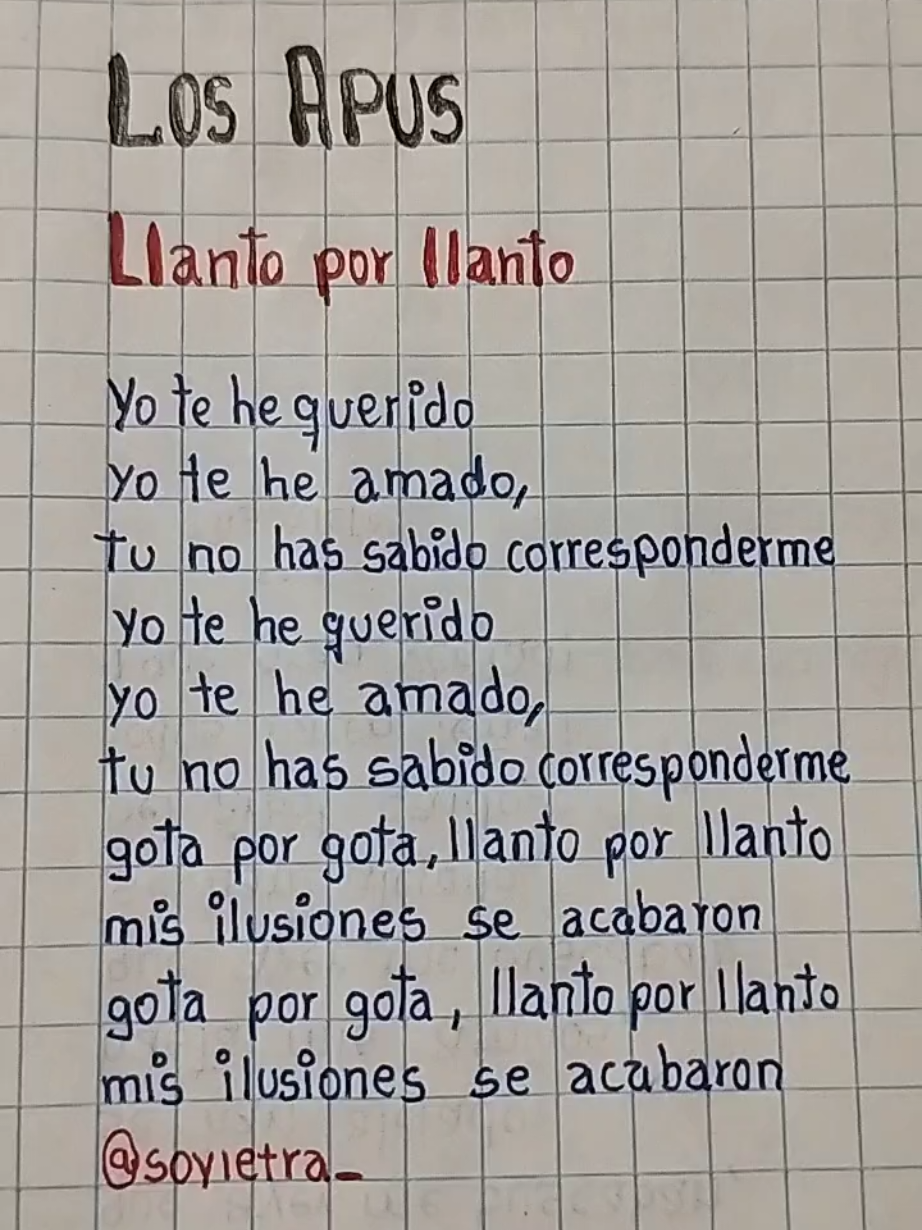 LOS APUS
Llanto por llanto
Yo te he querido
yo te he amado,
tu no has sabido corresponderme
yo te he querido
yo te he amado,
tu no has sabido corresponderme
gota por gota, llanto por llanto
mis ilusiones se acabaron
gota por gota, llanto por llanto
mis ilusiones se acabaron
@soyletra_